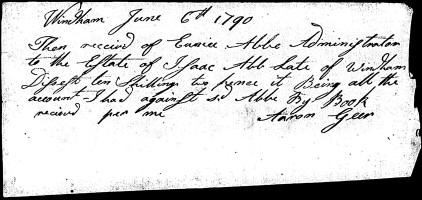 Windham June 6th 1790
Then receivd of Eunice Abbe Administrator
to the Estate of Isaac Abb Late of Windham
Dissest ten Shillings two pence it Being all the
account I had against sd Abbe By Book
recievd per me Aaron Geer